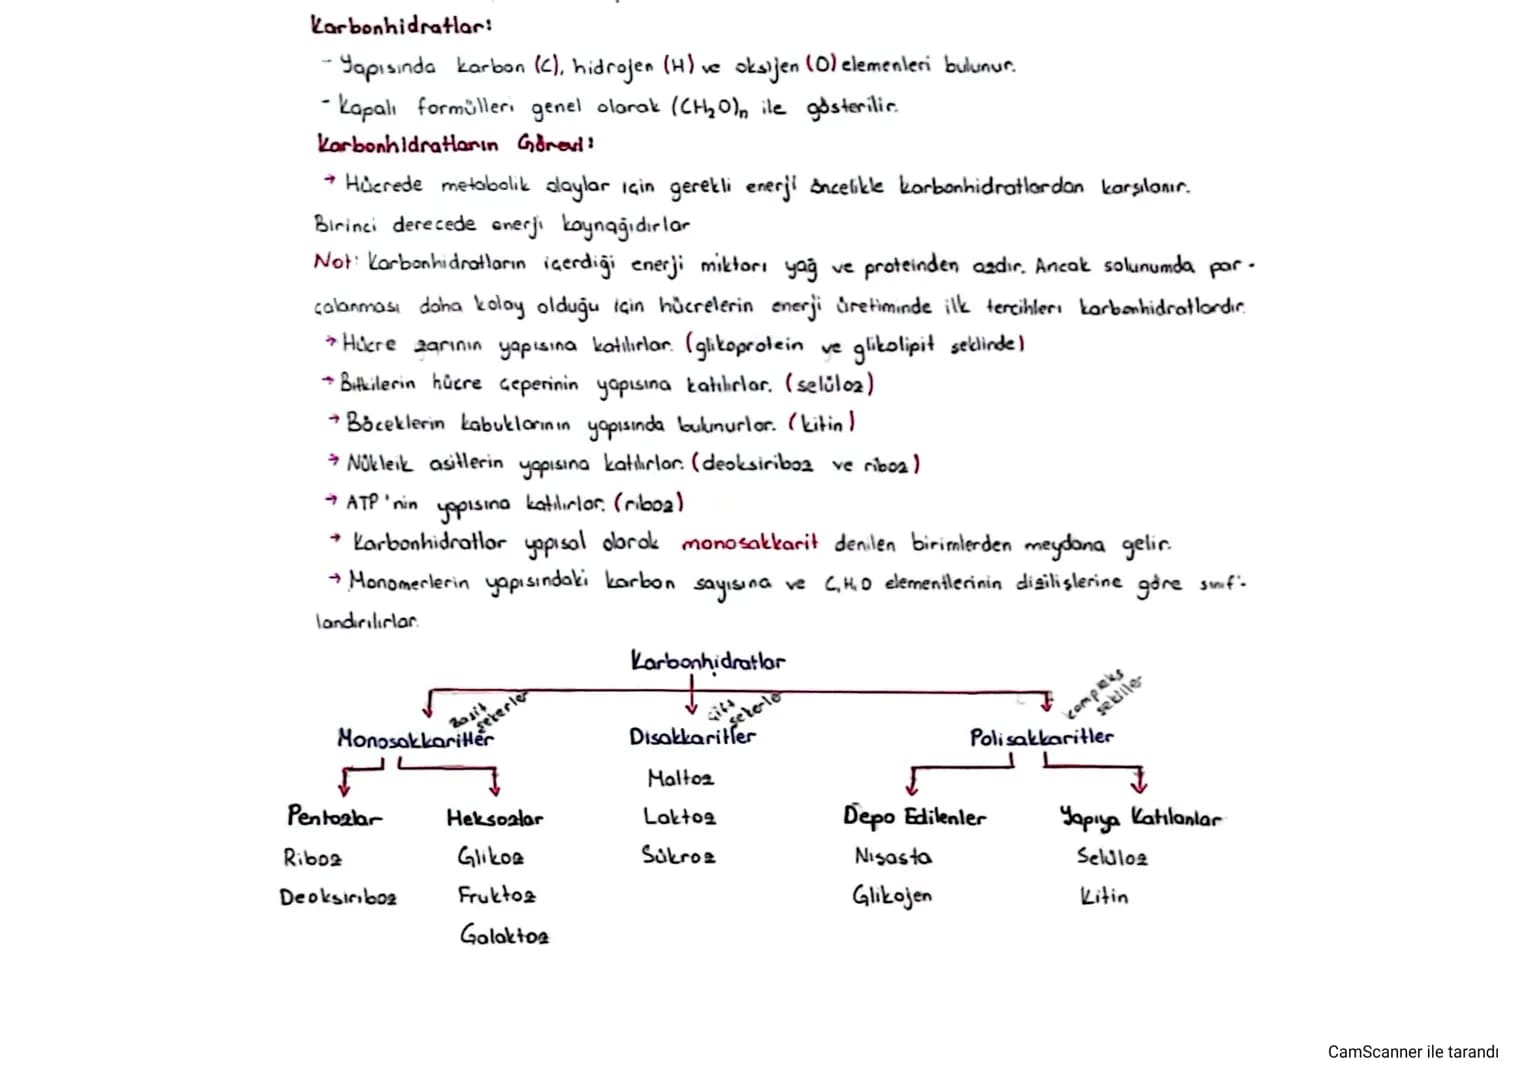 Karbonhidratlar:
- Yapısında karbon (C), hidrojen (H) ve oksijen (O) elemenleri bulunur.
- Kapalı formülleri genel olarak (CH₂O)n ile gösterilir.
Karbonhidratların Görevi:
→ Hücrede metabolik olaylar için gerekli enerji öncelikle karbonhidratlardan karşılanır.
Birinci derecede enerji kaynağıdırlar
Not: Karbonhidratların içerdiği enerji miktarı yağ ve proteinden azdır. Ancak solunumda par-
çalanması daha kolay olduğu için hücrelerin enerji üretiminde ilk tercihleri karbonhidratlardır.
→ Hücre zarının yapısına katılırlar. (glikoprotein ve glikolipit şeklinde)
→ Bitkilerin hücre çeperinin yapısına katılırlar. (selüloz)
→ Böceklerin kabuklarının yapısında bulunurlar. (kitin)
→ Nükleik asitlerin yapısına katılırlar. (deoksiriboz ve riboz)
→ ATP'nin yapısına katılırlar. (riboz)
→ Karbonhidratlar yapısal olarak monosakkarit denilen birimlerden meydana gelir.
→ Monomerlerin yapısındaki karbon sayısına ve C,H,O elementlerinin dizilişlerine göre sınıf-
landırılırlar.
Karbonhidratlar
Basit şekerler
Çift şekerler
kompleks şekiller
Monosakkaritler Disakkaritler Polisakkaritler
Maltoz
Pentozlar Heksozlar Laktoz Depo Edilenler Yapıya Katılanlar
Riboz Glikoz Sükroz Nişasta Selüloz
Deoksiriboz Fruktoz Glikojen Kitin
Galaktoz
CamScanner ile tarandı